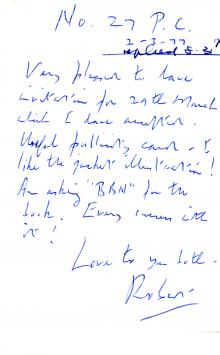 No. 27 P.C.
2-3-77
replied 8.3
Very pleased to have
invitation for 29th March
which I have accepted.
Useful publicity card - I
like the jacket illustration!
Am asking "BBN" for the
book. Every success with
it!
Love to you both -
Robert